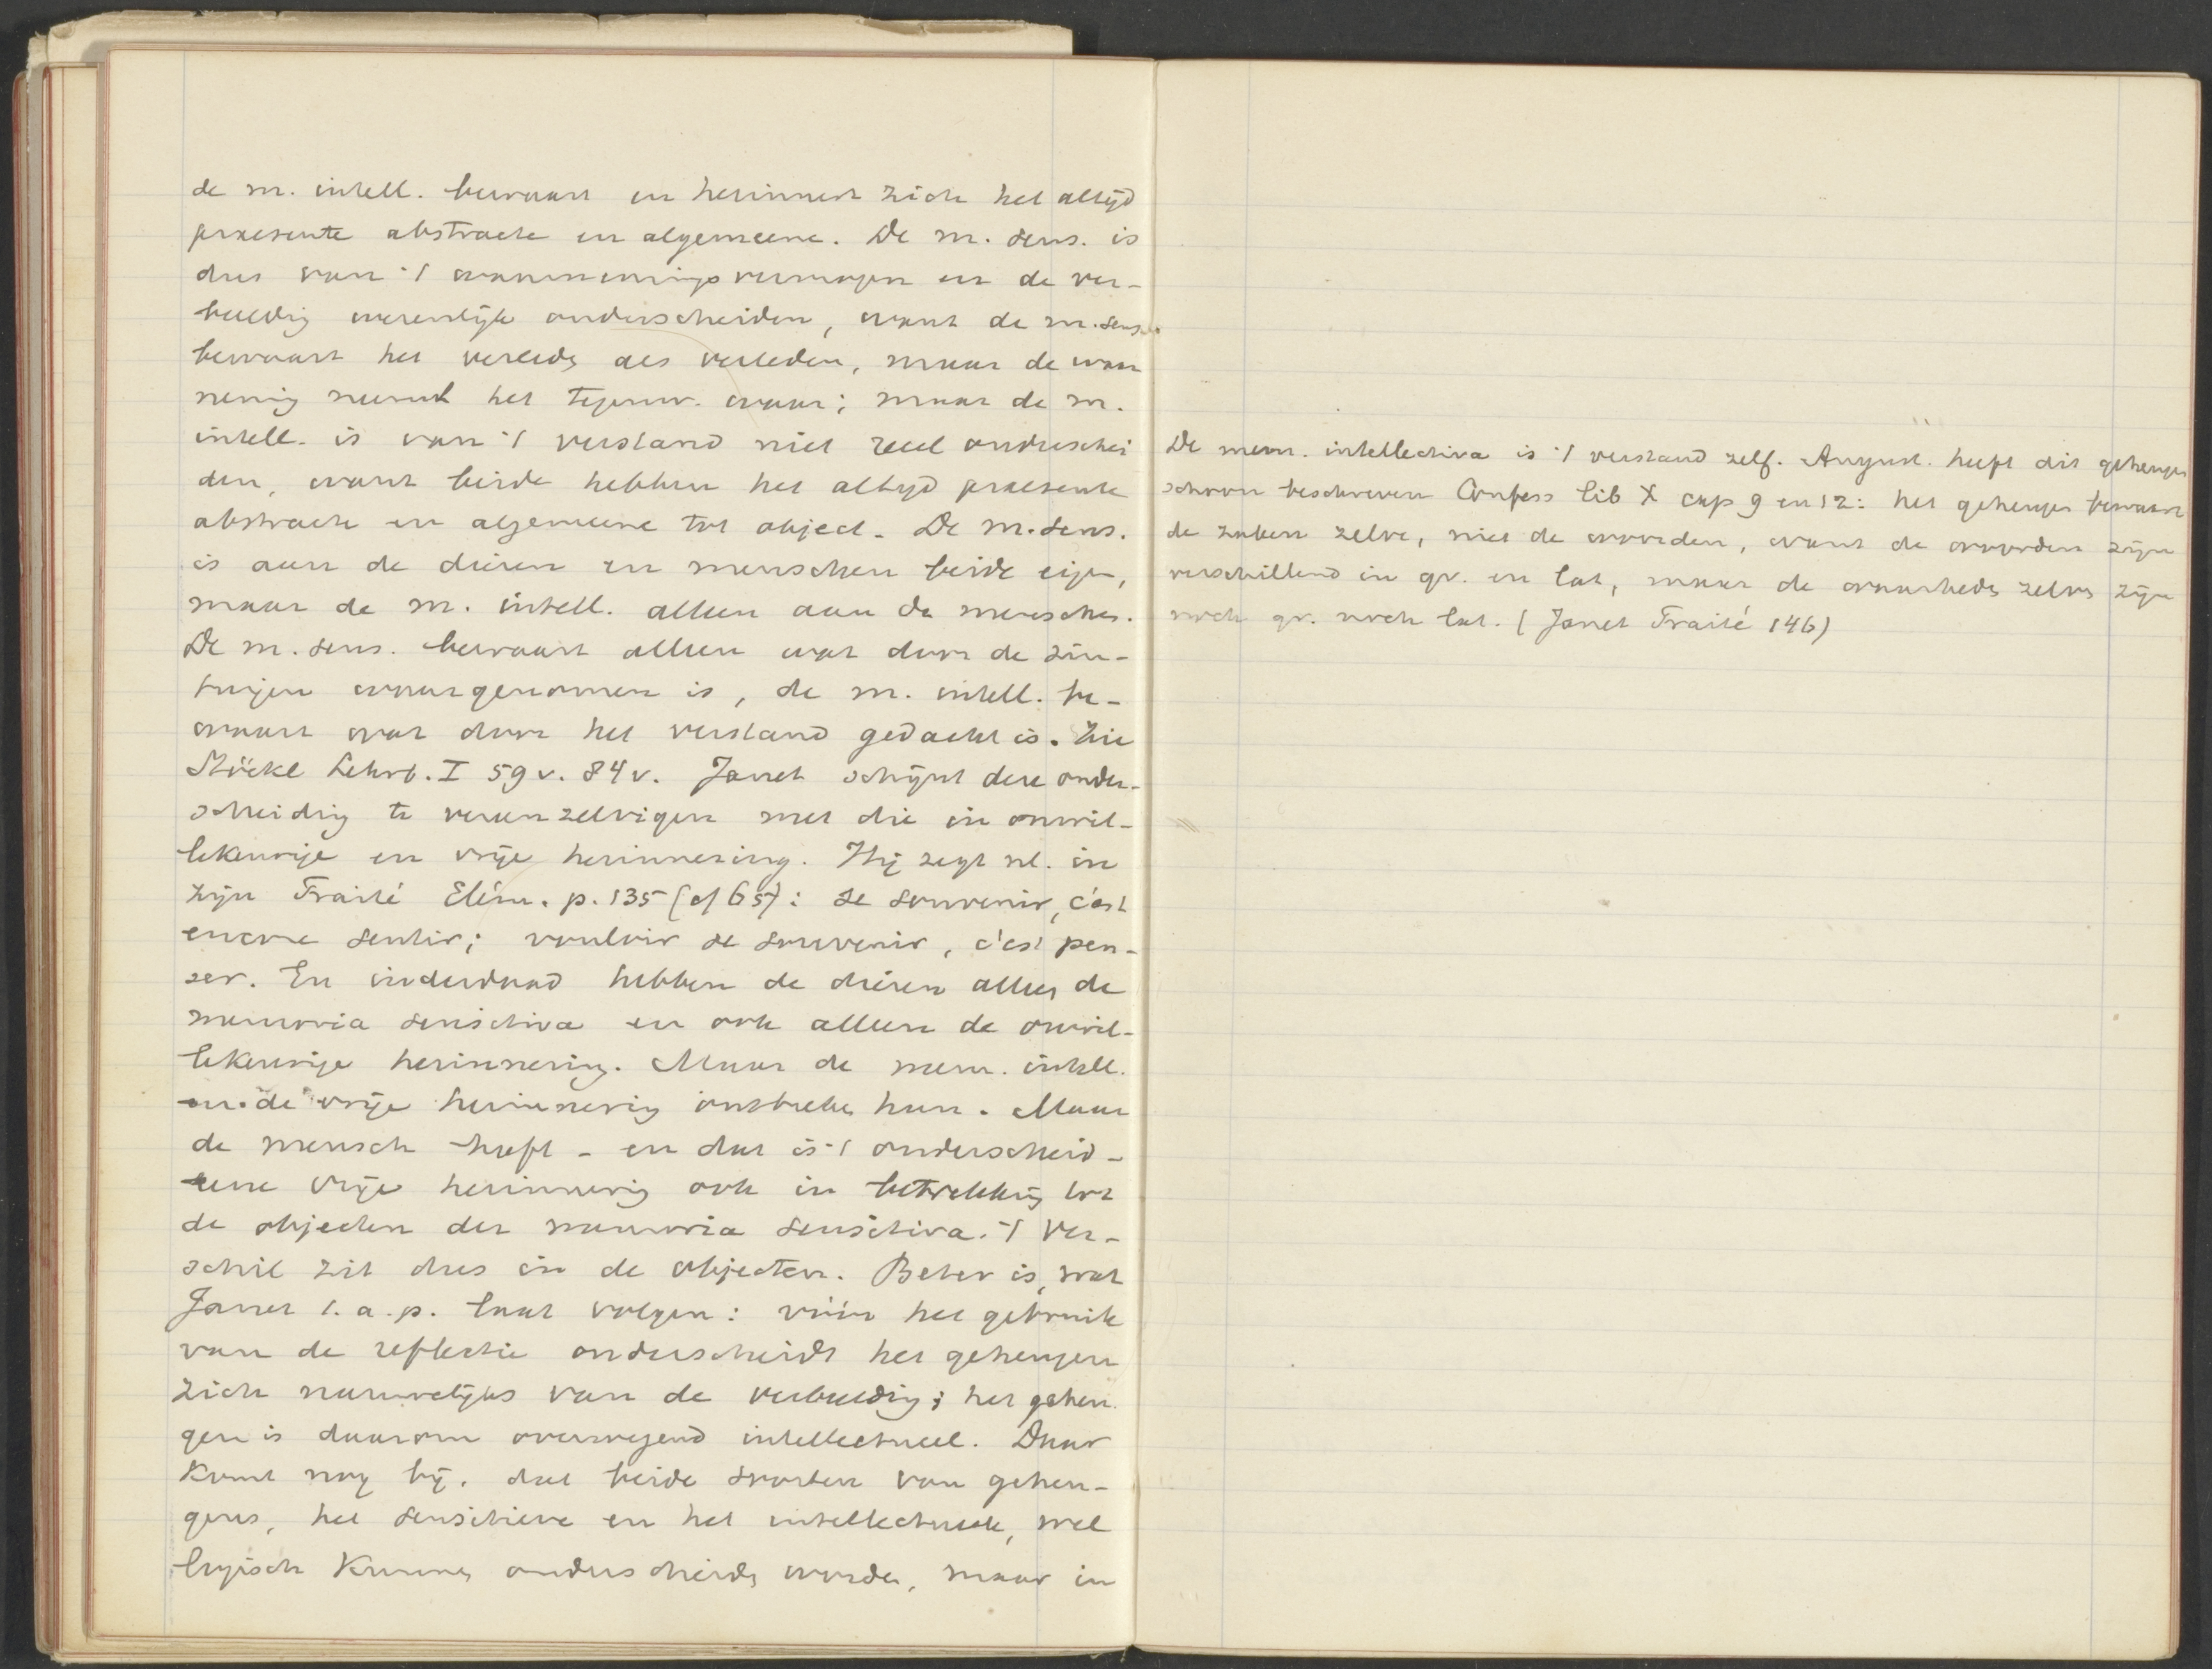 de m. intell. bewaart en herinnert zich het altijd
praesente abstracte en algemeene. De m. sens. is
dus van 't waarnemingsvermogen en de ver-
beeldig wezenlijk onderscheiden, want de m. sens.
bewaart het verleds als verleden, maar de waar
neming neemt het tegenw. waar; maar de m.
intell. is van 't verstand niet reeel onderschei
den, want beide hebben het altijd praesente
abstracte en algemeene tot object. De m. sens.
is aan de dieren en menschen beide eigen,
maar de m. intell. alleen aan de menschen.
De m. sens. bewaart alleen wat door de zin-
tuigen waargenomen is, de m. intell. be-
waart wat door het verstand gedacht is. Zie
Stöckl Lehrb. I 59 v. 84 v. Janet schijnt deze onder-
scheiding te vereenzelvigen met die in onwil-
lekeurige en vrije herinnering. Hij zegt nl. in
zijn Traité Elém. p. 135 (of 65): se souvenir, c'est
encore sentir; vouloir se souvenir, c'est pen-
ser. En inderdaad hebben de dieren alleen de
memoria sensitiva en ook alleen de onwil-
lekeurige herinnering. Maar de mem. intell.
en de vrije herinnering ontbreken hun. Maar
de mensch heeft - en dat is 't onderscheid -
eene vrije herinnering ook in betrekking tot
de objecten der memoria sensitiva. 't Ver-
schil zit dus in de objecten. Beter is, wat
Janet t. a. p. laat volgen: vóór het gebruik
van de reflectie onderscheidt het geheugen
zich nauwelijks van de verbeelding; het geheu
gen is daarom overwegend intellectueel. Daar
komt nog bij, dat beide soorten van geheu-
gens, het sensitieve en het intellectueele, wel
logisch kunnen onderscheiden worden, maar in
De mem. intellectiva is 't verstand zelf. August. heeft dit geheugen
schoon beschreven Confess lib X cap 9 en 12: het geheugen bewaart
de zaken zelve, niet de woorden, want de woorden zijn
verschillend in gr. en lat, maar de waarheden zelve zijn
noch gr. noch lat. (Janet Traité 146)